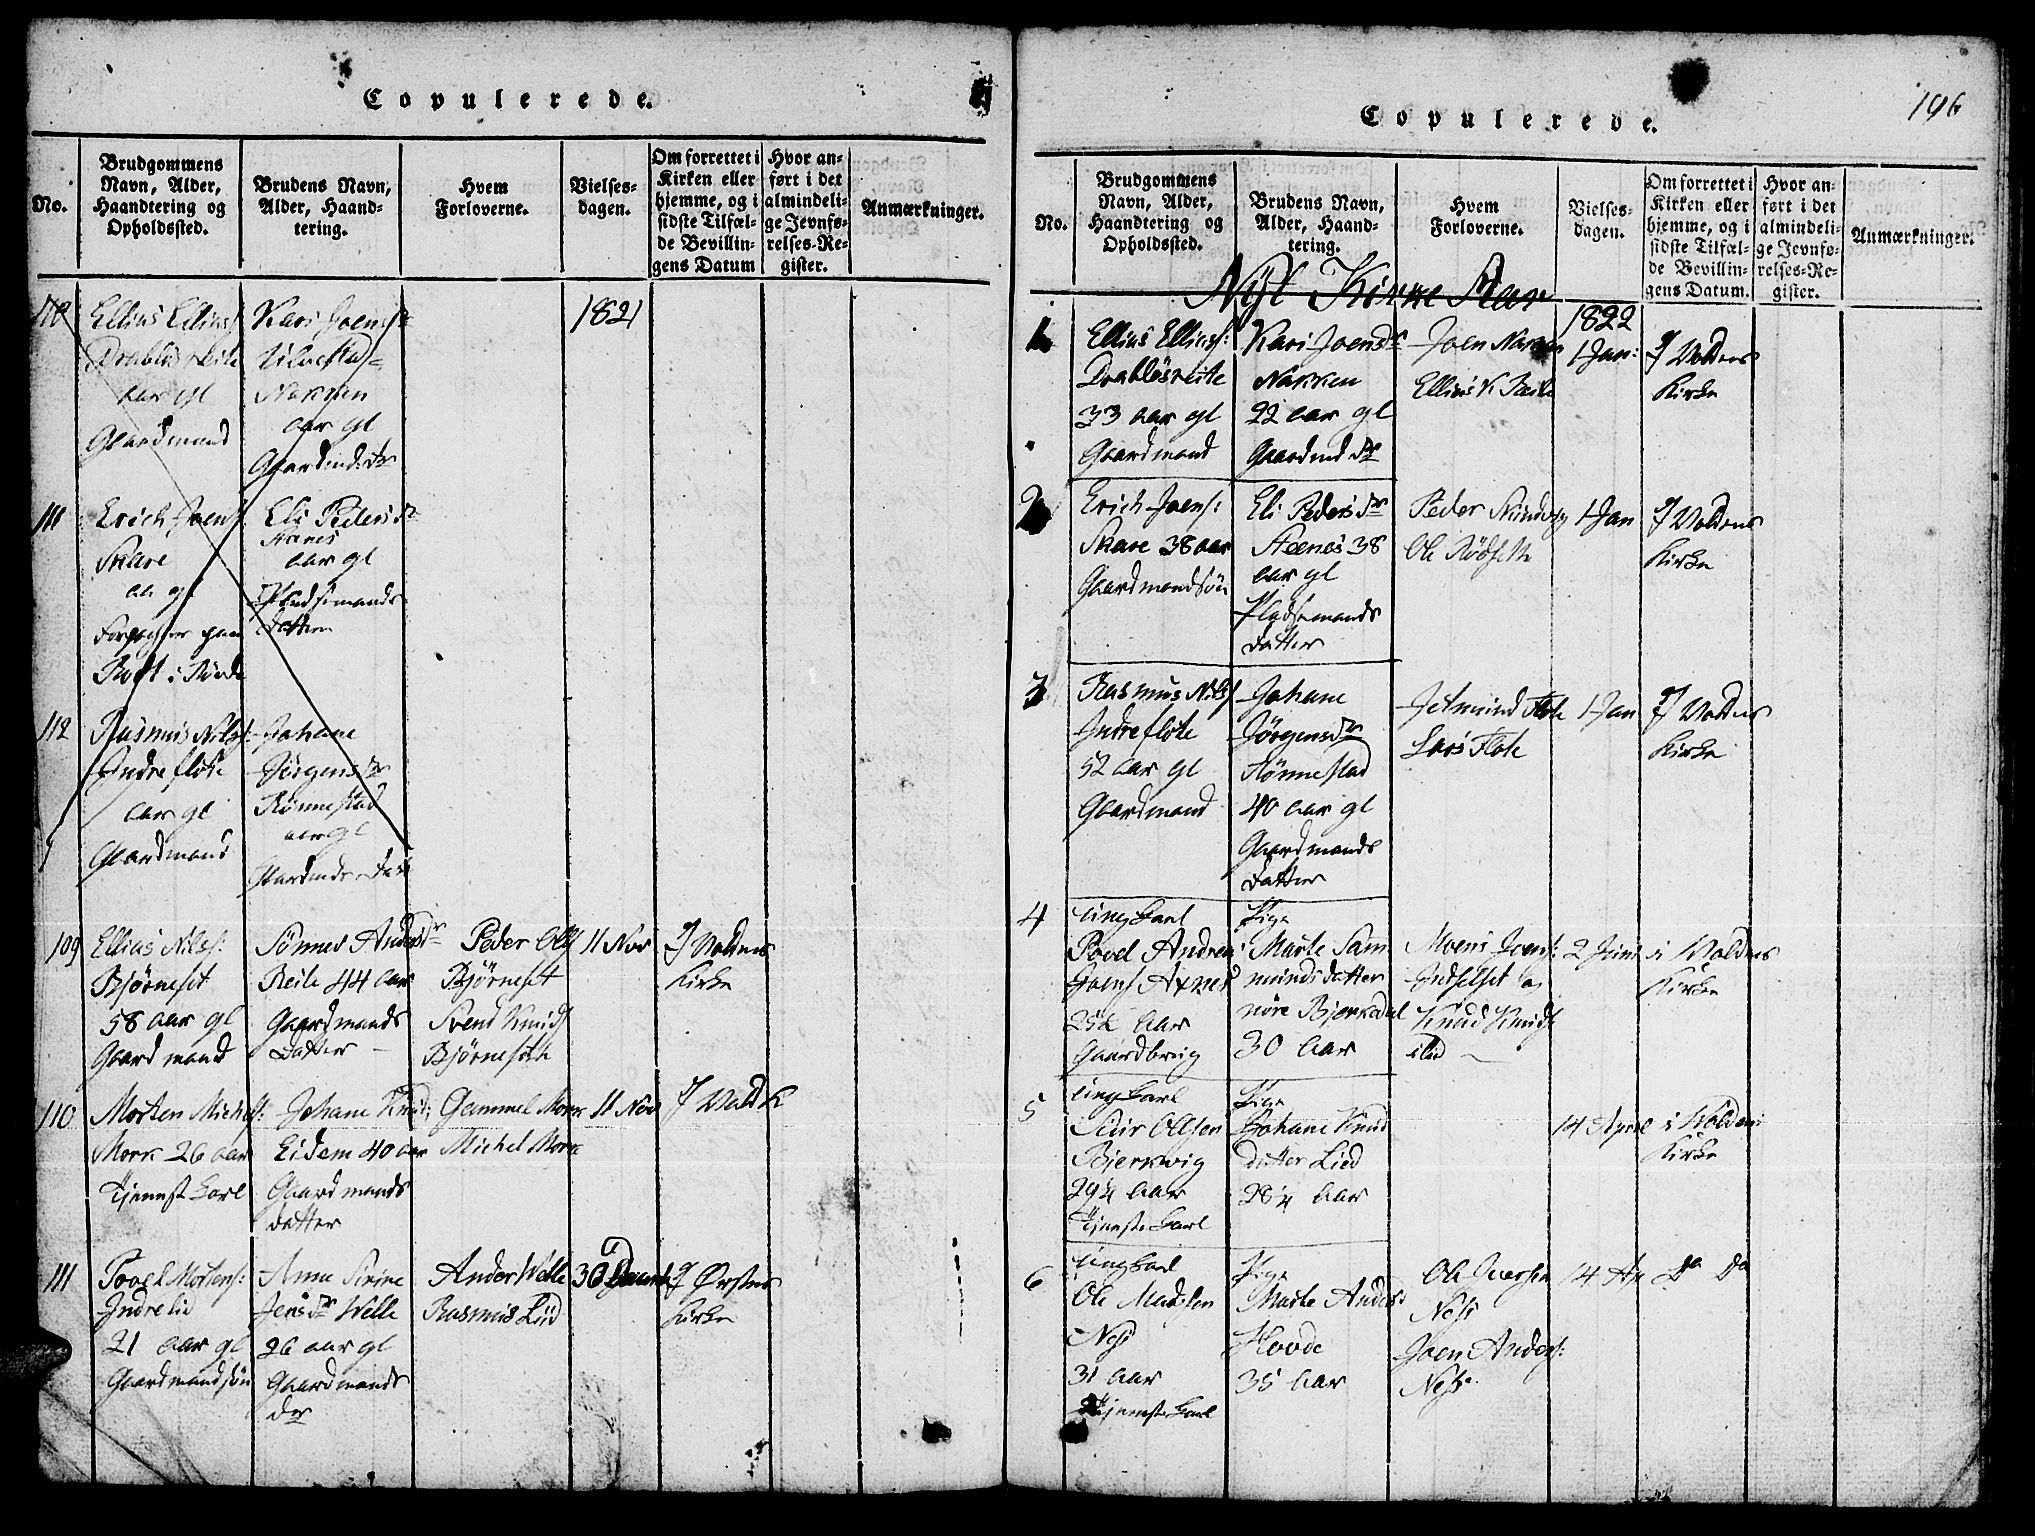 Copulerede.
No.
Brudgommens
Navn, Alder,
Haandtering og
Opholdssted.
Brudens Navn,
Alder, Haand-
tering.
Hvem
Forloverne.
Vielses-
dagen.
Om forrettet i
Kirken eller
hjemme, og i
sidste Tilfæl-
de Bevillin-
gens Datum
Hvor an-
ført i det
almindeli-
ge Jevnfø-
relses-Re-
gister.
Anmærkninger.
Ellius Ellius:
Drabløs reite
aar gl
Gaardmand
Kari Joens
Nakken
aar gl
Gaardmds. Dr
1821
111
Erich Joens:
Skare
aar gl
Eli Peders Dr
Stenes
aar gl
Pladsemands
Datter
112
Rasmus Nils:
Indre flote
aar gl
Gaardmand
Johane
Jørgens Dr
Rønnestad
aar gl
Gaardmds Datt
109
Ellius Nils:
Bjørneset
58 aar gl
Gaard mand
Anders Dr
Reite 44 aar
Gaardmands
Datter
Peder Ols
Bjørneset
Svend Knuds
Bjørneseth
11 Nov
I Voldens
Kirke
110
Morten Michels:
Mork 26 aar
Tjenneste Karl
Johane Knuds
Eidem 40 aar
Gaardmands
Datter
Gammel Mork
Michel Mork
11 Nov
I Vold K
111
Povel Mortens:
Indre lid
21 aar gl
Gaardmandsøn
Anne Sirine
Jens Dr Welle
26 aar gl
Gaardmands
Dr
Ander Welle
Rasmus Liid
30
I Ørstens
Kirke
Copulerede.
196
No.
Brudgommens
Navn, Alder,
Haandtering og
Opholdssted.
Brudens Navn,
Alder, Haand-
tering.
Hvem
Forloverne.
Vielses-
dagen.
Om forrettet i
Kirken eller
hjemme, og i
sidste Tilfæl-
de Bevillin-
gens Datum.
Hvor an-
ført i det
almindeli-
ge Jevnfø-
relses-Re-
gister.
Anmærkninger.
Nyt Kirke Aar
1822
1
Ellius Ellius:
Drabløsreite
33 aar gl
Gaardmand
Kari Joens Dr
Nakken
22 aar gl
Gaardmd Dr
Joen Nakken
Ellius K Reite
1 Jan:
I Voldens
Kirke
2
Erich Joens:
Skare 38 aar
Gaardmandsøn
Eli Peders Dr
Steenes 38
aar gl
Pladsemands
Datter
Peder
Ole Rødseth
1 Jan
I Voldens
Kirke
3
Rasmus Nils
Indreflote
52 aar gl
Gaardmand
Johane
Jørgens Dr
Rønnestad
40 aar gl
Gaardmands
Datter
Jetmund Flote
Lars Flote
1 Jan
I Voldens
Kirke
4
ung Karl
Povel Andrea
Joens Axnes
25 1/2 Aar
Gaardbrug
Pige
Marte Sam
munds datter
nøre Bjerkedal
30 Aar
Moens Joens:
Indselset og
Knud Knuds
ilid
2 Juni
i Woldens
Kirke
5
ung Karl
Siur Olsen
Bierkvig
29 1/4 Aar
Tjeneste Karl
Pige
Johane Knud
datter Lied
28 1/4 Aar
14 April
i Woldens
Kirke
6
ung Karl
Ole Madsen
Nes
31 Aar
Tjeneste Karl
Pige
Marte Anders:
Hovde
35 Aar
Ole Iversen
Nes
Joen Anders:
Nes
14 Ap
Do Do